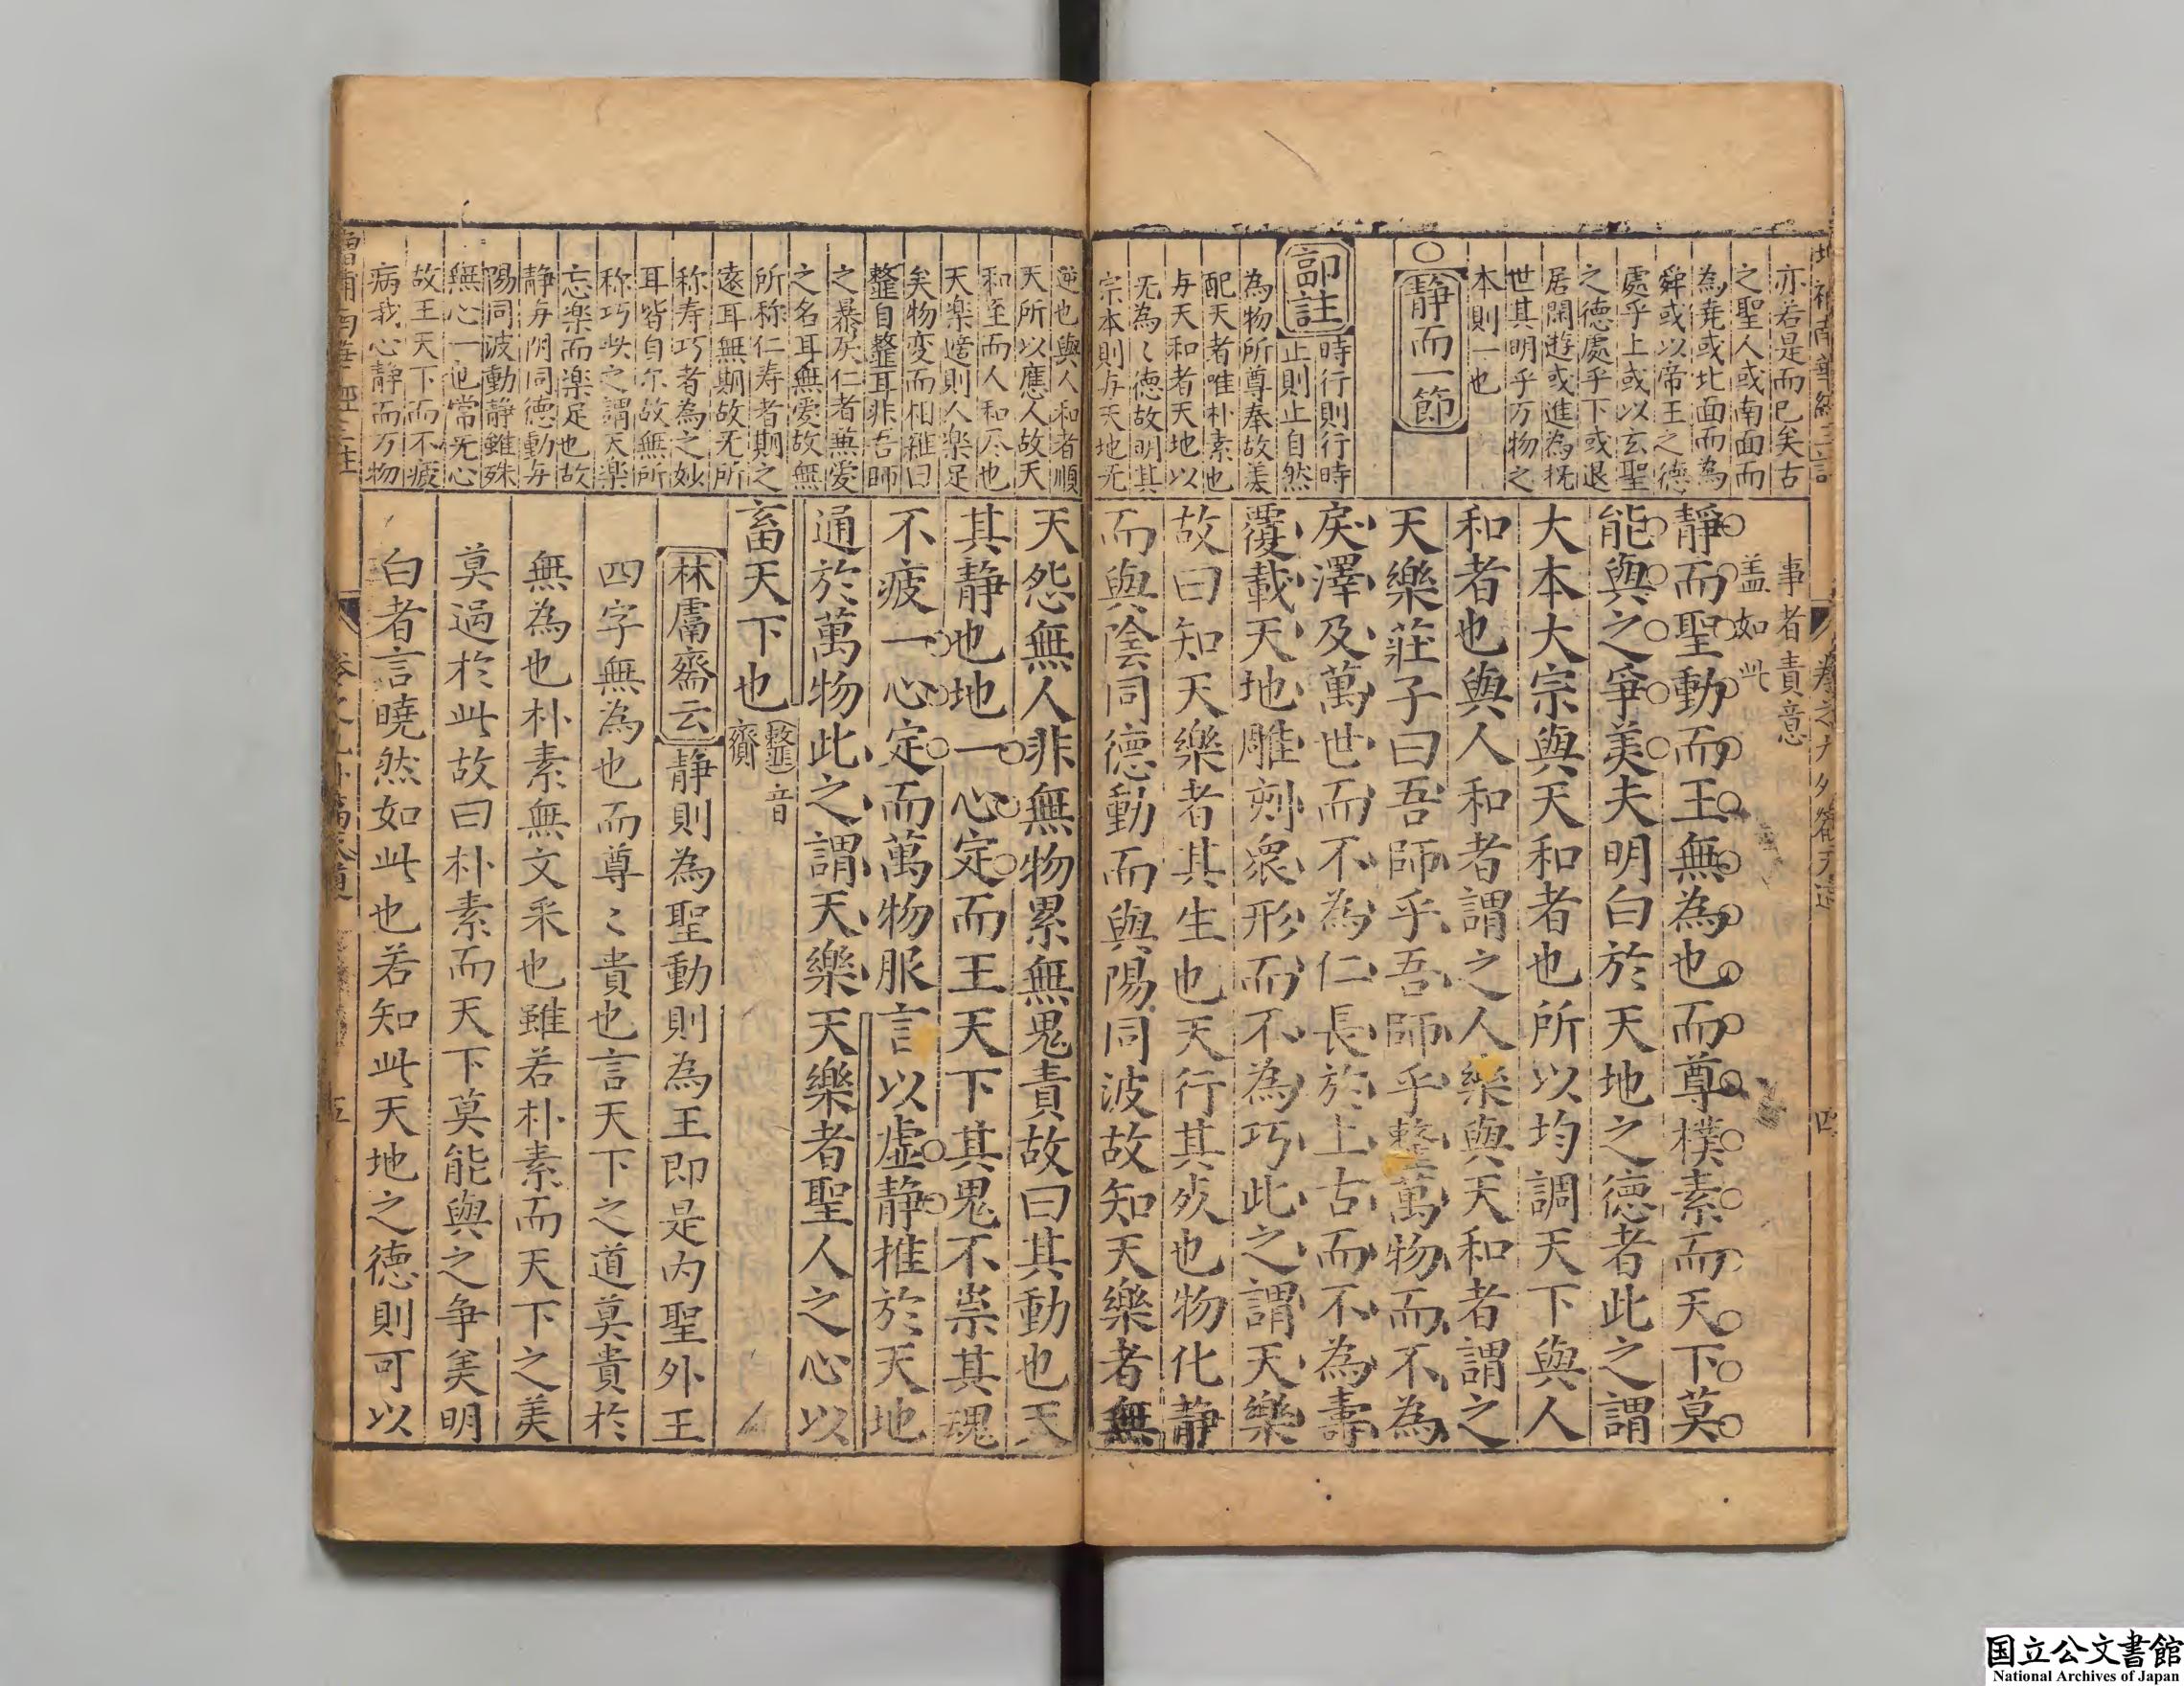 亦若是而已矣古
之聖人或南面而
為堯或北面而為
舜或以帝王之德
處乎上或以玄聖
之德處乎下或退
居閒遊或進為抚
世其明乎万物之
本則一也
○靜而一節
郭註
時行則行時
止則止自然
為物所尊奉故羙
配天者唯朴素也
与天和者天地以
无為〻德故明其
宗本則与天地无
事者責意
盖如此
靜而聖動而王無為也而尊樸素而天下莫
能與之爭美夫明白於天地之德者此之謂
大本大宗與天和者也所以均調天下與人
和者也與人和者謂之人樂與天和者謂之
天樂莊子曰吾師乎吾師乎𩐋萬物而不為
戾澤及萬世而不為仁長於上古而不為壽
覆載天地雕刻衆形而不為巧此之謂天樂
故曰知天樂者其生也天行其死也物化静
而與陰同德動而與陽同波故知天樂者無
卷之九外篇天道
四
逆也與人和者順
天所以應人故天
和至而人和尽也
天楽適則人楽足
矣物変而相雜曰
𩐋自𩐋耳非吾師
之暴戾仁者兼愛
之名耳無愛故無
所称仁寿者期之
遠耳無期故无所
称寿巧者為之妙
耳皆自尔故無所
称巧此之謂天楽
忘楽而楽足也故
静与阴同德動与
陽同波動静雖殊
無心一也常无心
故王天下而不疲
病我心静而万物
天怨無人非無物累無鬼責故曰其動也天
其静也地一心定而王天下其鬼不祟其魂
不疲一心定而萬物服言以虚静推於天地
通於萬物此之謂天樂天樂者聖人之心以
畜天下也
𩐋音
齏
林鬳齋云静則為聖動則為王即是内聖外王
四字無為也而尊〻貴也言天下之道莫貴於
無為也朴素無文采也雖若朴素而天下之美
莫過於此故曰朴素而天下莫能與之争美明
白者言曉然如此也若知此天地之德則可以
五
国立公文書館
National Archives of Japan